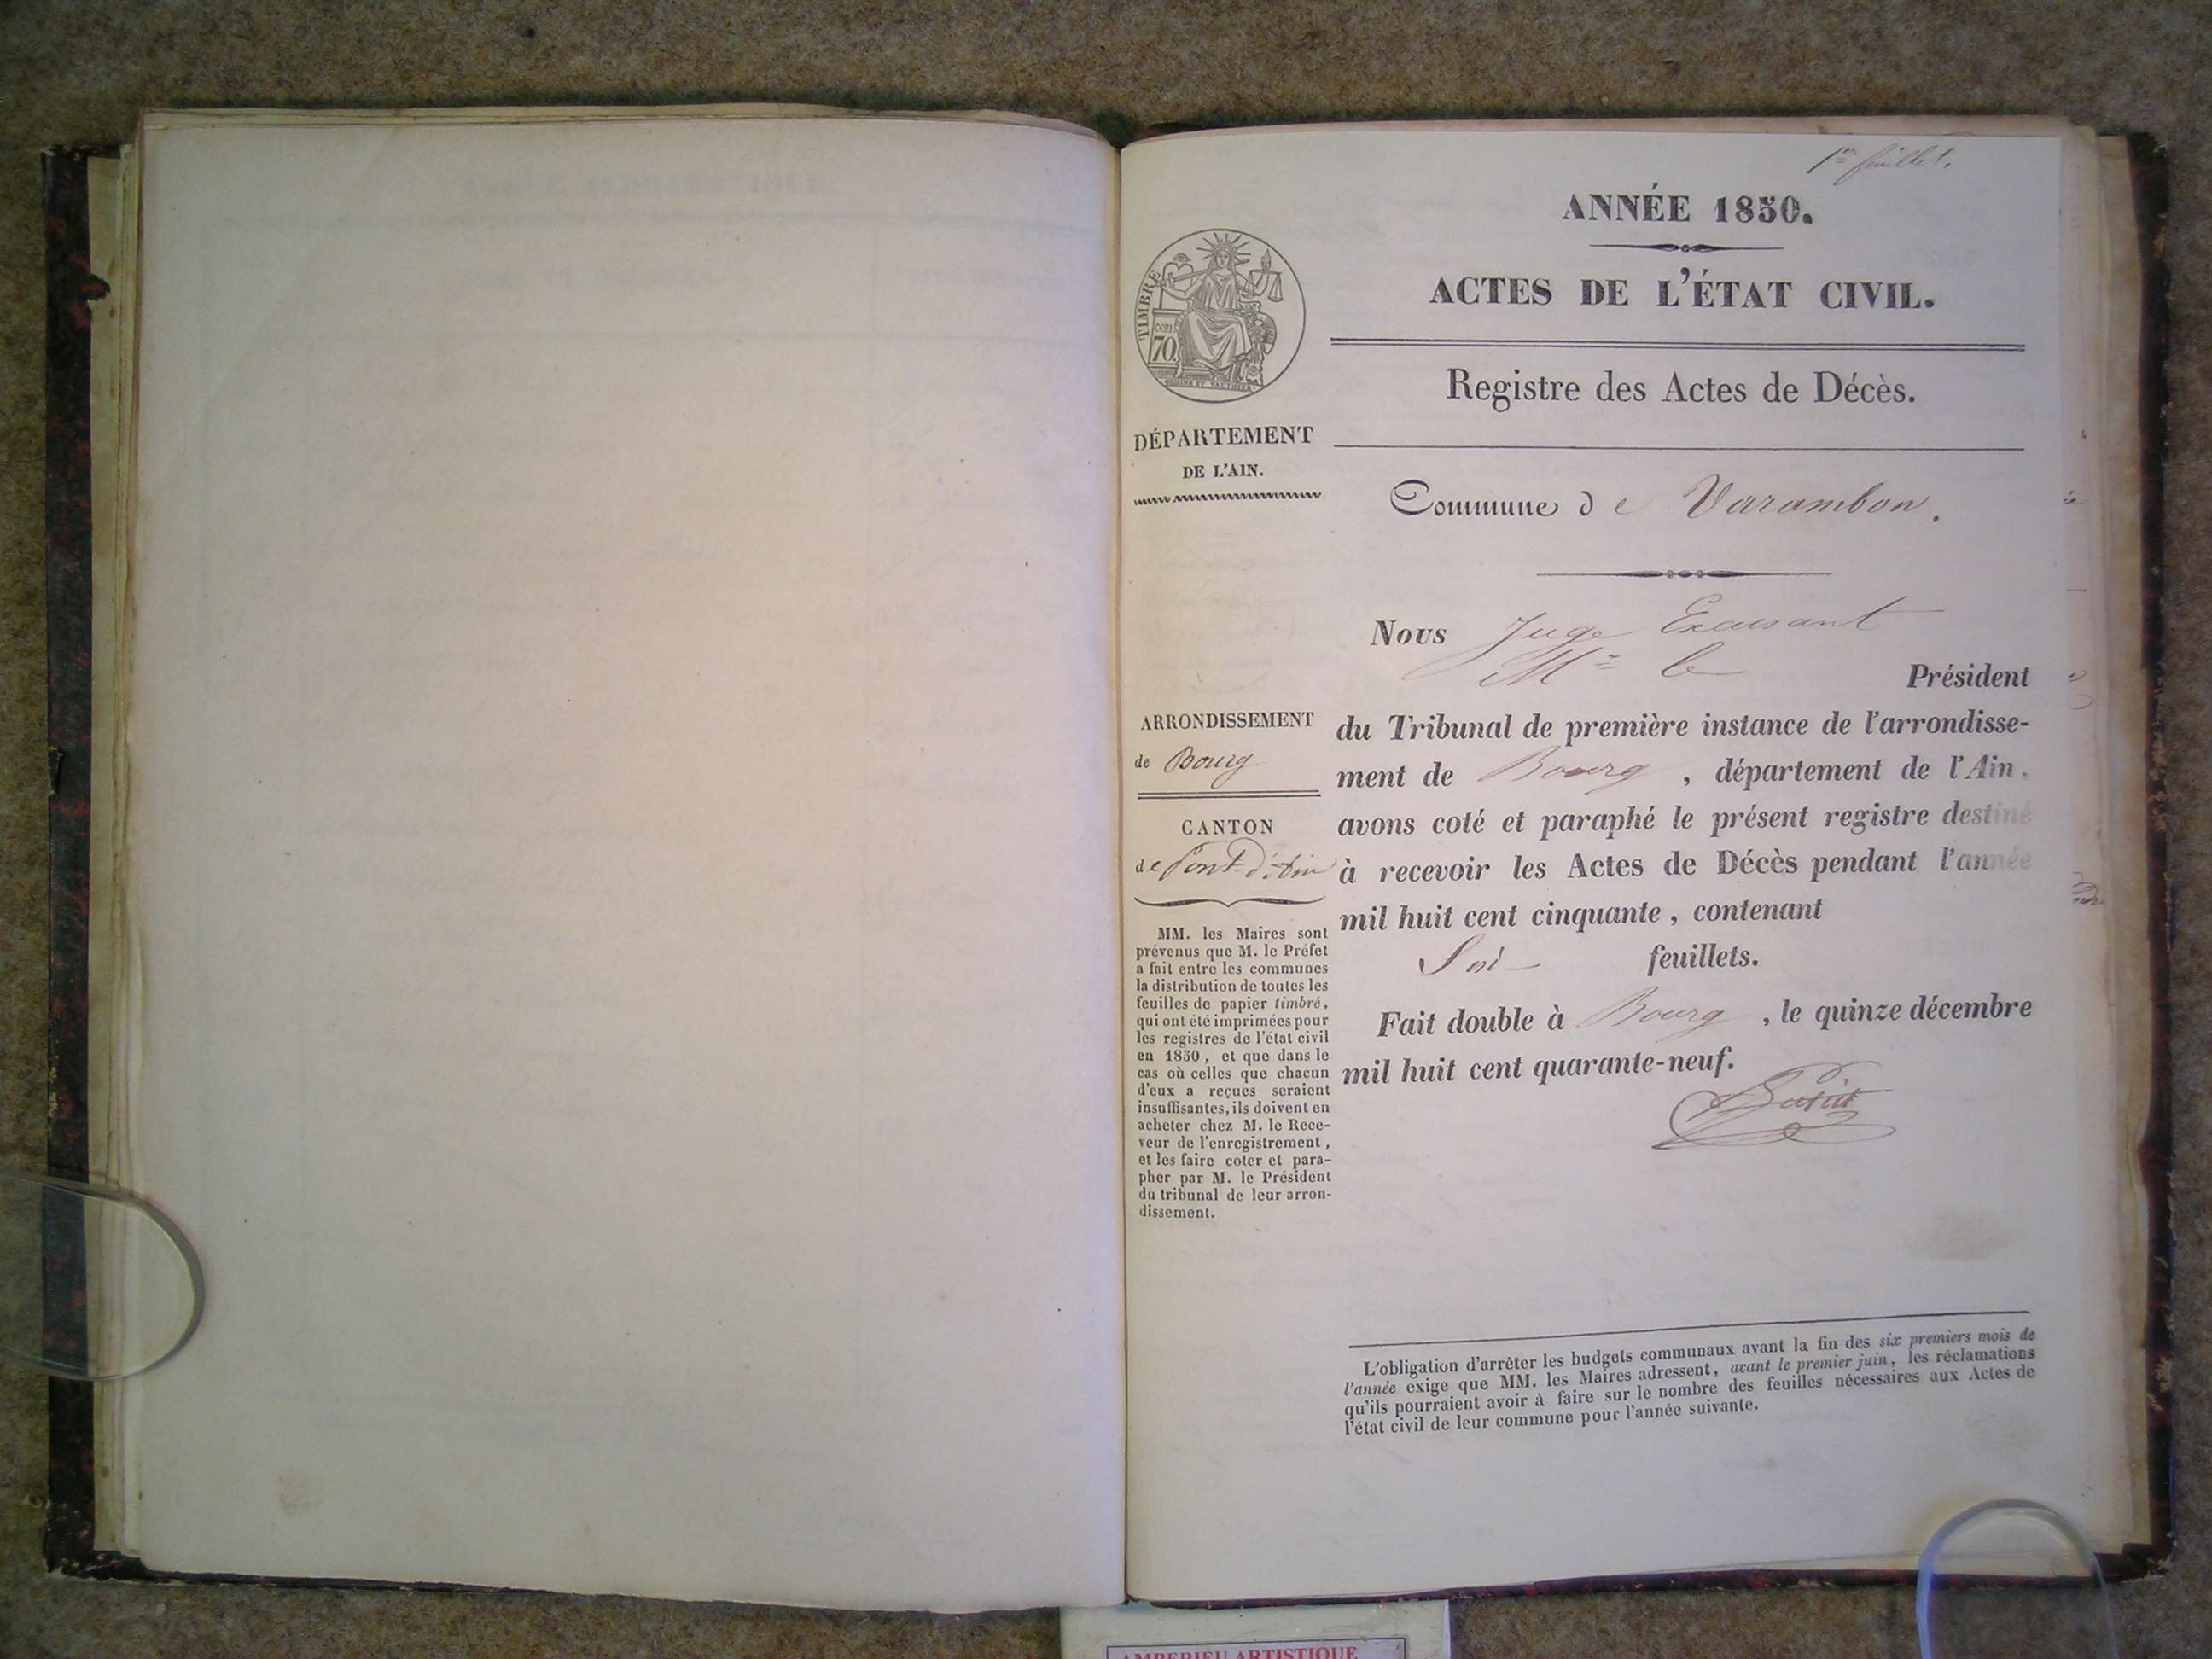 1er feuillet.
ANNÉE 1850.
ACTES DE L'ÉTAT CIVIL.
Registre des Actes de Décès.
TIMBRE
cen.
70.
DÉPARTEMENT
DE L'AIN.
Commune de Varambon.
Nous Juge
Mr le Président
ARRONDISSEMENT
de Bourg
CANTON
de Pont-d'Ain
du Tribunal de première instance de l'arrondisse-
ment de Bourg, département de l'Ain,
avons coté et paraphé le présent registre destiné
à recevoir les Actes de Décès pendant l'année
mil huit cent cinquante, contenant
Six feuillets.
Fait double à Bourg, le quinze décembre
mil huit cent quarante-neuf.
MM. les Maires sont
prévenus que M. le Préfet
a fait entre les communes
la distribution de toutes les
feuilles de papier timbré,
qui ont été imprimées pour
les registres de l'état civil
en 1850, et que dans le
cas où celles que chacun
d'eux a reçues seraient
insuffisantes, ils doivent en
acheter chez M. le Rece-
veur de l'enregistrement,
et les faire coter et para-
pher par M. le Président
du tribunal de leur arron-
dissement.
L'obligation d'arrêter les budgets communaux avant la fin des six premiers mois de
l'année exige que MM. les Maires adressent, avant le premier juin, les réclamations
qu'ils pourraient avoir à faire sur le nombre des feuilles nécessaires aux Actes de
l'état civil de leur commune pour l'année suivante.
AMBERIEU ARTISTIQUE